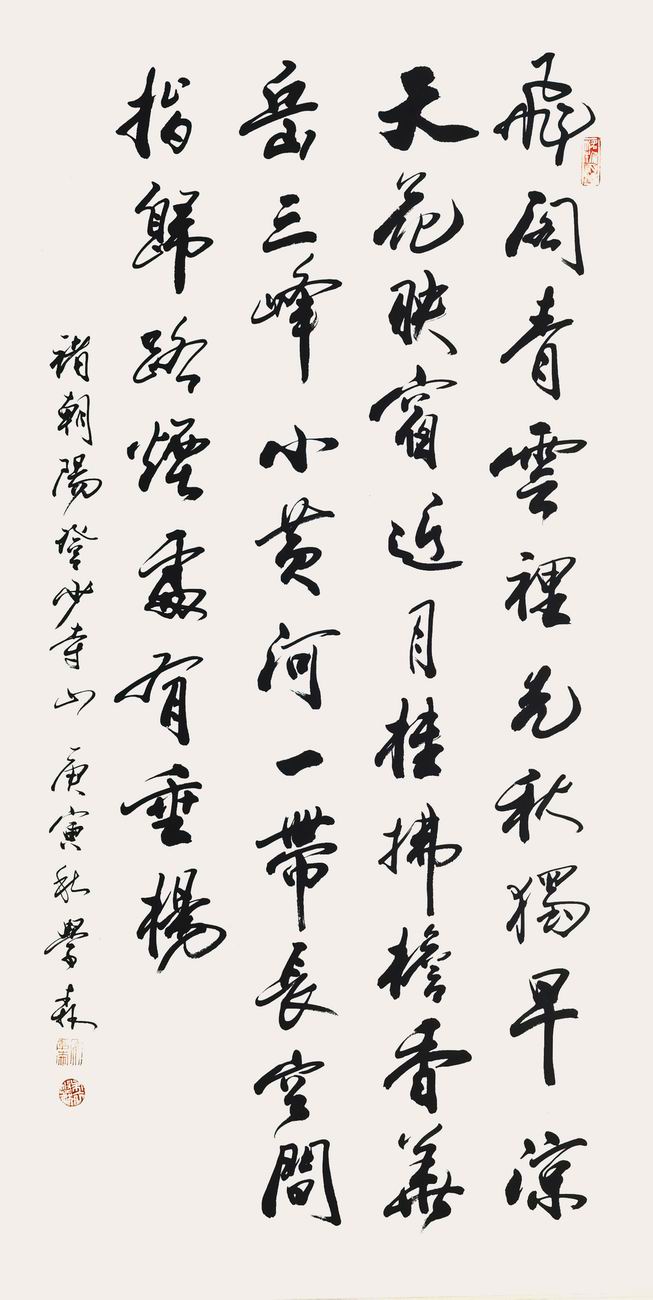 飛閣青雲裡先秋獨早涼
天花映窗近月桂拂檐香華
岳三峰小黃河一帶長空間
指歸路煙處有垂楊
褚朝陽登少寺山 庚寅秋學森